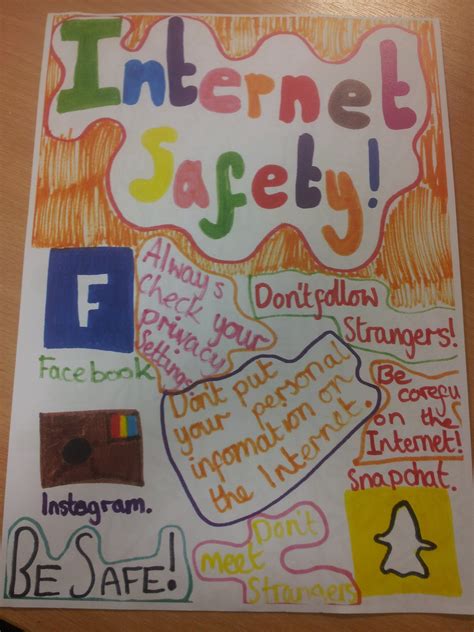 Internet
Safety!
F
Facebook
Always
check your
privacy
Settings
Don't follow
Strangers!
Don't put
your personal
infomation on
the Internet.
Be
carefu
on the
Internet!
Instagram.
Snapchat.
BE SAFE!
Don't
meet
Strangers